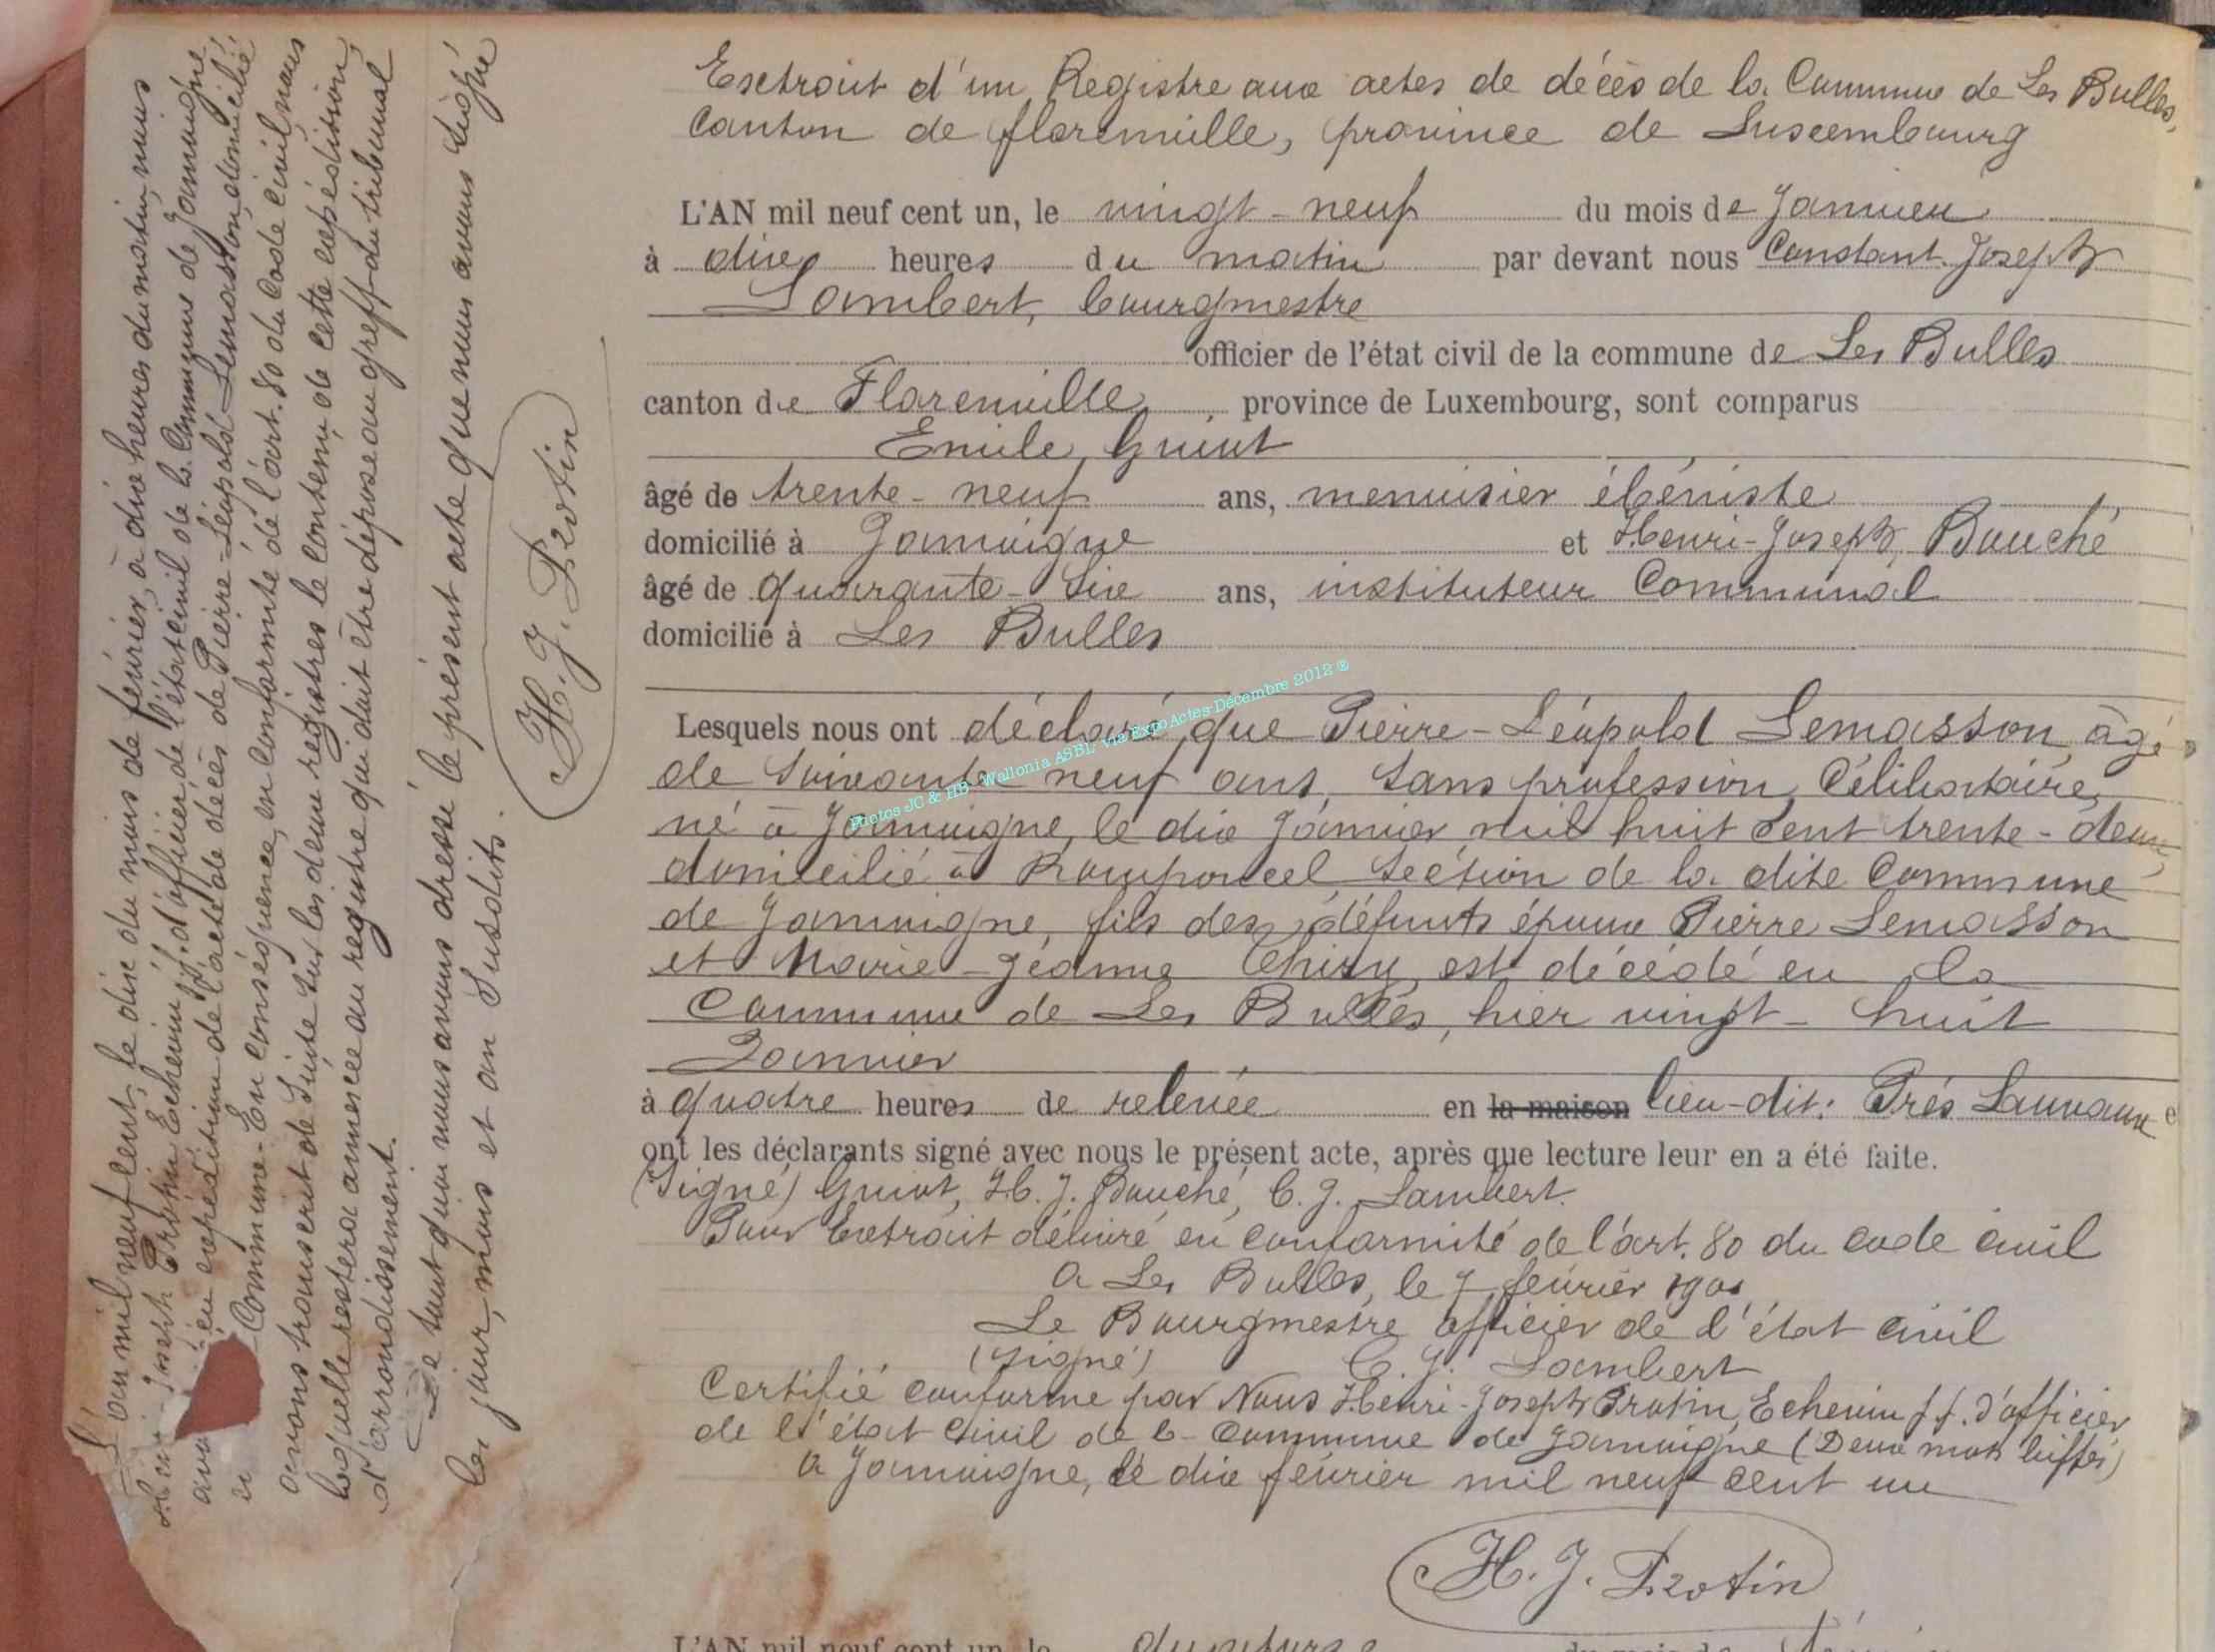 Extrait d'un Registre aux actes de décès de la Commune de Les Bulles,
Canton de florenville, province de Luxembourg
L'AN mil neuf cent un, le vingt-neuf du mois de Janvier
à dix heures du matin par devant nous Constant Joseph
Lambert, bourgmestre
officier de l'état civil de la commune de Les Bulles
canton de Florenville, province de Luxembourg, sont comparus
Emile Guiot
âgé de trente-neuf ans, menuisier ébéniste
domicilié à Jamoigne et Henri-Joseph Bouché
âgé de quarante-six ans, instituteur Communal
domicilié à Les Bulles
Lesquels nous ont déclaré que Pierre-Léopold Lemasson âgé
de soixante neuf ans, sans profession, Célibataire,
né à Jamoigne, le dix Janvier mil huit cent trente-deux,
domicilié à Romponcel section de la dite Commune
de Jamoigne, fils des défunts époux Pierre Lemasson
et Marie-Jeanne Thiry, est décédé en la
Commune de Les Bulles, hier vingt-huit
Janvier
à quatre heures de relevée en la maison lieu-dit: Prés Lauvaux e
ont les déclarants signé avec nous le présent acte, après que lecture leur en a été faite.
(Signé) Guiot, H. J. Bouché, C. J. Lambert.
Pour Extrait délivré en conformité de l'art. 80 du code civil
A Les Bulles, le 7 février 1901
Le Bourgmestre officier de l'état civil
(signé) C. J. Lambert
Certifié conforme par Nous Henri-Joseph Protin, Echevin f.f. d'officier
de l'état civil de la Commune de Jamoigne (Deux mots biffés)
A Jamoigne, le dix février mil neuf cent un
H. J. Protin
L'AN mil neuf cent un, le du mois de
L'an mil neuf cent, le dix du mois de février, à dix heures du matin, nous
Henri Joseph Protin Echevin f.f. d'officier de l'état civil de la Commune de Jamoigne
avons en expédition de l'acte de décès de Pierre-Léopold Lemasson, domicilié
en Commune - En conséquence, en conformité de l'art. 80 du Code civil, nous
avons transcrit de suite sur les deux registres le contenu de cette expédition,
laquelle restera annexée au registre qui doit être déposé au greffe du tribunal
d'arrondissement.
De tout quoi nous avons dressé le présent acte que nous avons signé
les jour, mois et an susdits.
H. J. Protin
Photos JC & HB Wallonia ASBL via ExpoActes Décembre 2012 ®